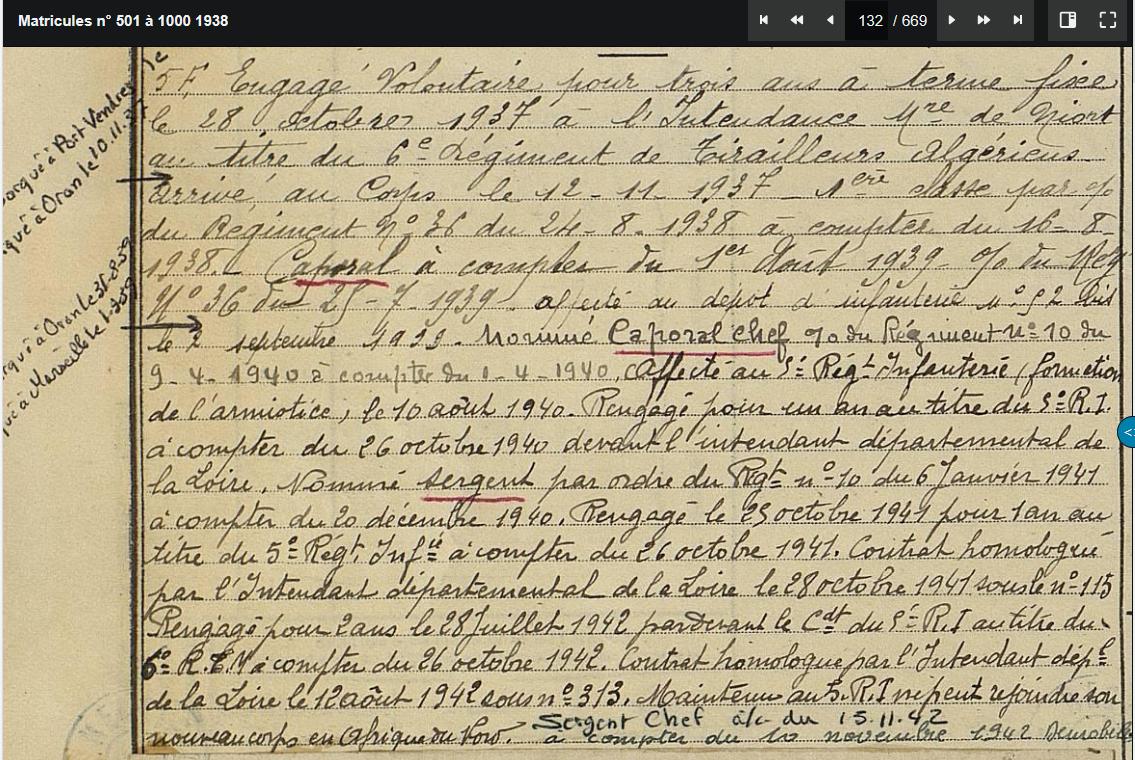 Matricules n° 501 à 1000 1938
132 / 669
Engagé Volontaire pour trois ans à terme fixé
le 28 octobre 1937 à l'Intendance Mre de Niort
au titre du 6e Régiment de Tirailleurs Algériens
arrivé, au Corps le 12-11-1937 1ère classe par %
du Régiment N° 36 du 24-8-1938 à compter du 16-8-
1938. Caporal à compter du 1er Août 1939 % du Reg
N° 36 du 25-7-1939. affecté au dépôt d'infanterie n° 52
le 2 septembre 1939. Nommé Caporal chef % du Régiment n° 10 du
9-4-1940 à compter du 1-4-1940. Affecté au 5e Régt Infanterie (formation
de l'armistice, le 10 août 1940. Rengagé pour un an au titre du 5e R.I.
à compter du 26 octobre 1940 devant l'intendant départemental de
la Loire. Nommé sergent par ordre du Régt n° 10 du 6 Janvier 1941
à compter du 20 décembre 1940. Rengagé le 25 octobre 1941 pour 1 an au
titre du 5e Régt Infrie à compter du 26 octobre 1941. Contrat homologué
par l'Intendant départemental de la Loire le 28 octobre 1941 sous le n° 115
Rengagé pour 2 ans le 28 Juillet 1942 par devant le Cdt du 5e R.I au titre du
6e à compter du 26 octobre 1942. Contrat homologué par l'Intendant dépal
de la Loire le 12 août 1942 sous n° 313. Maintenu au 5. R.I ne peut rejoindre son
nouveau corps en Afrique du Nord. Sergent Chef a/c du 15.11.42
à compter du novembre 1942
à Port Vendres le
à Oran le 10.11.37
à Oran le 31-8-39
à Marseille le